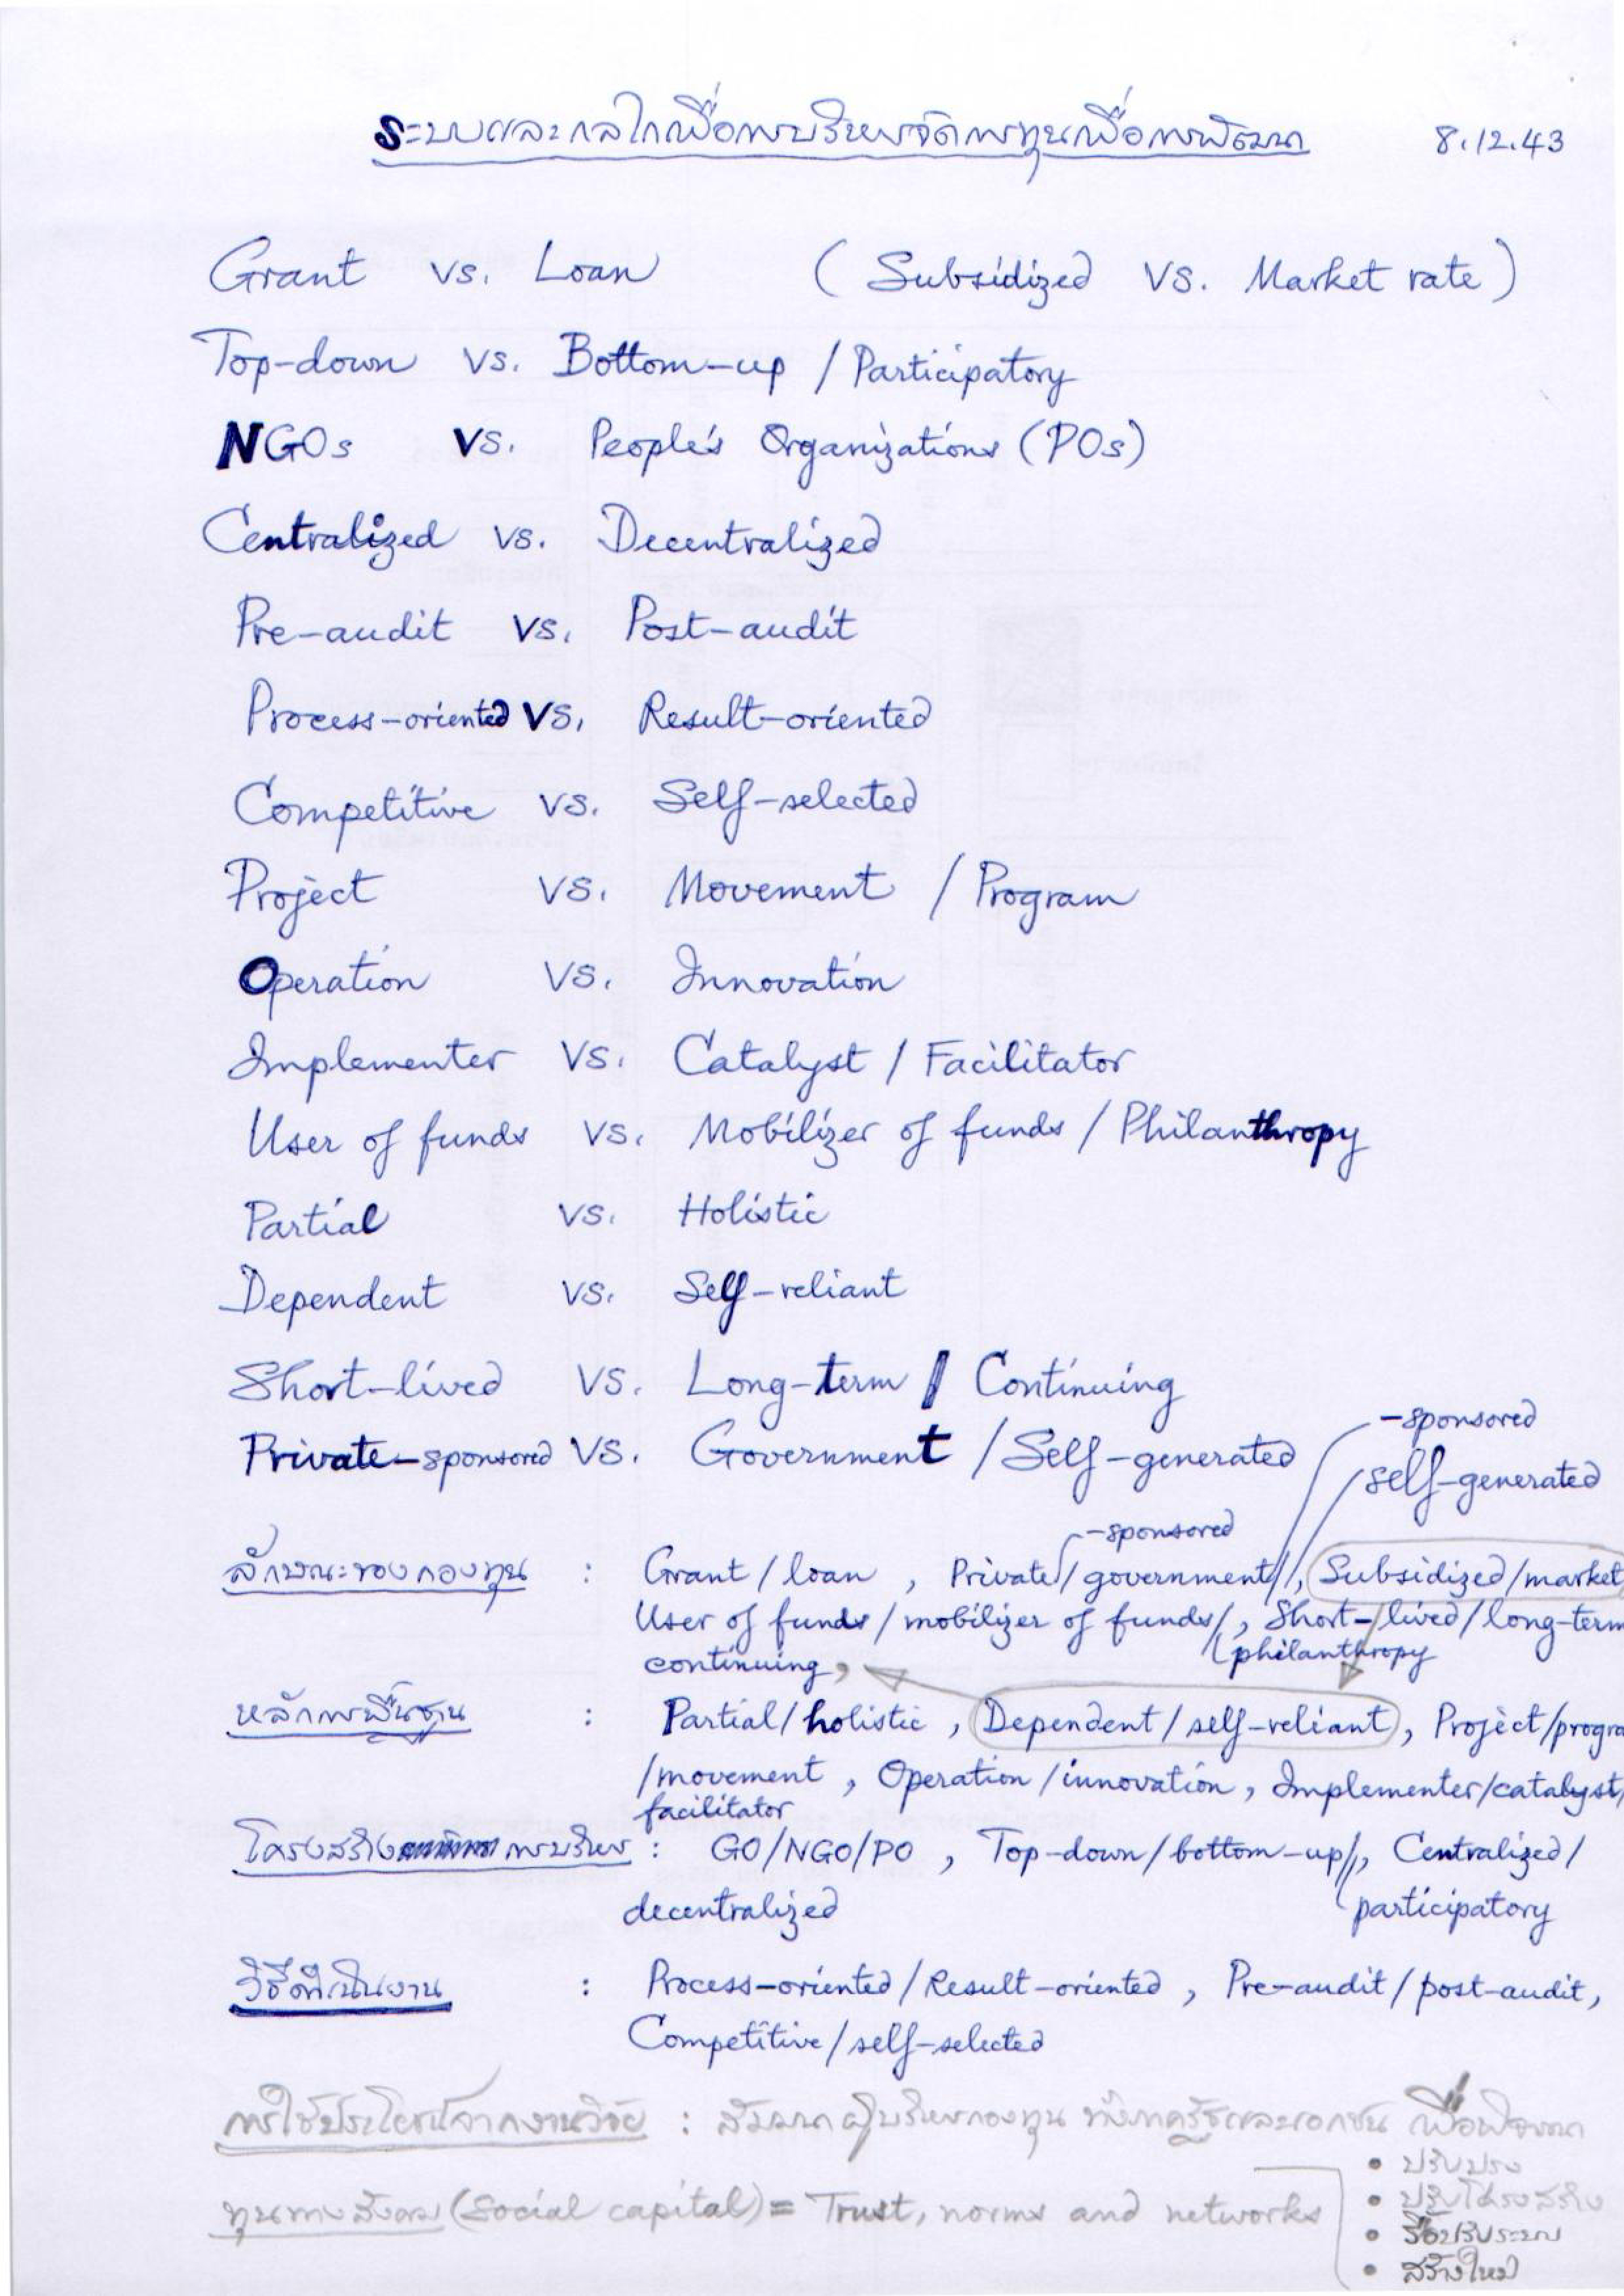 ระบบและกลไกเพื่อการบริหารจัดการทุนเพื่อการพัฒนา 8.12.43
Grant vs. Loan (Subsidized vs. Market rate)
Top-down vs. Bottom-up / Participatory
NGOs vs. People's Organizations (POs)
Centralized vs. Decentralized
Pre-audit vs. Post-audit
Process-oriented vs. Result-oriented
Competitive vs. Self-selected
Project vs. Movement / Program
Operation vs. Innovation
Implementer vs. Catalyst / Facilitator
User of funds vs. Mobilizer of funds / Philanthropy
Partial vs. Holistic
Dependent vs. Self-reliant
Short-lived vs. Long-term / Continuing
-sponsored
Private-sponsored vs. Government / Self-generated
self-generated
-sponsored
ลักษณะของกองทุน : Grant / loan , Private / government / , Subsidized / market
User of funds / mobilizer of funds / , Short-lived / long-term
continuing , philanthropy
หลักการพื้นฐาน : Partial / holistic , Dependent / self-reliant , Project / progra
/movement , Operation / innovation , Implementer / catalyst /
facilitator
โครงสร้าง การบริหาร : GO/NGO/PO , Top-down / bottom-up / , Centralized /
decentralized participatory
วิธีดำเนินงาน : Process-oriented / Result-oriented , Pre-audit / post-audit ,
Competitive / self-selected
การใช้ประโยชน์จากงานวิจัย : สัมมนา ผู้บริหารกองทุน ทั้งภาครัฐและเอกชน เพื่อพิจารณา
• ปรับปรุง
ทุนทางสังคม (Social capital) = Trust, norms and networks
• ปรับโครงสร้าง
• รื้อปรับระบบ
• สร้างใหม่